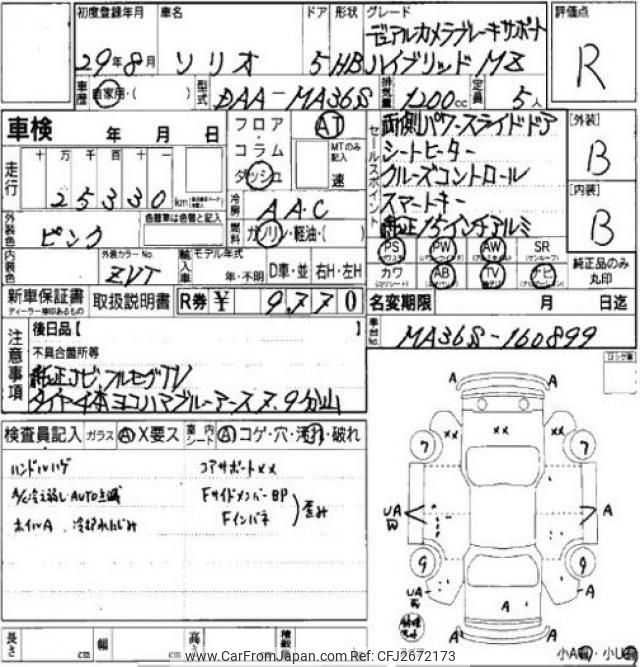 初度登録年月 車名 ドア 形状 グレード 評価点
29年8月 ソリオ 5 HB デュアルカメラブレーキサポート
ハイブリッド MZ
R
車歴 自家用・( ) 型式 DAA-MA36S 排気量 1200cc 定員 5人
車検 年 月 日
フロア・コラム ダッシュ AT MTのみ記入 速
セールスポイント
両側パワースライドドア
シートヒーター
クルーズコントロール
スマートキー
純正15インチアルミ
[外装] B
[内装] B
走行 十 万 千 百 十 一
25330 km
冷房 AAC
燃料 ガソリン・軽油・( )
外装色 ピンク 色替車は色替と記入
内装色 外装カラーNo. ZVT
輸入車 モデル年式 年・不明 D車・並 右H・左H
PS PW AW SR
カワ AB TV ナビ
純正品のみ丸印
新車保証書 ディーラー押印あるもの 取扱説明書 R券 ¥ 9,770
名変期限 月 日迄
車台No. MA36S-160899
注意事項
後日品【 】
不具合箇所等
純正ナビ、フルセグTV
タイヤ4本ヨコハマブルーアース ヌ.9分山
ロック車
検査員記入 ガラス A X要ス 室内シート A コゲ・穴・汚れ・破れ
ハンドルハゲ
A/C冷え弱し AUTO点滅
ホイルA、
コアサポートXX
FサイドメンバーBP
Fインパネ
歪み
A A
XX XX XX
7 7
UA W A
9 9
UA A
A
A A
小A 小U
長さ cm 幅 cm 高さ cm
www.CarFromJapan.com Ref: CFJ2672173